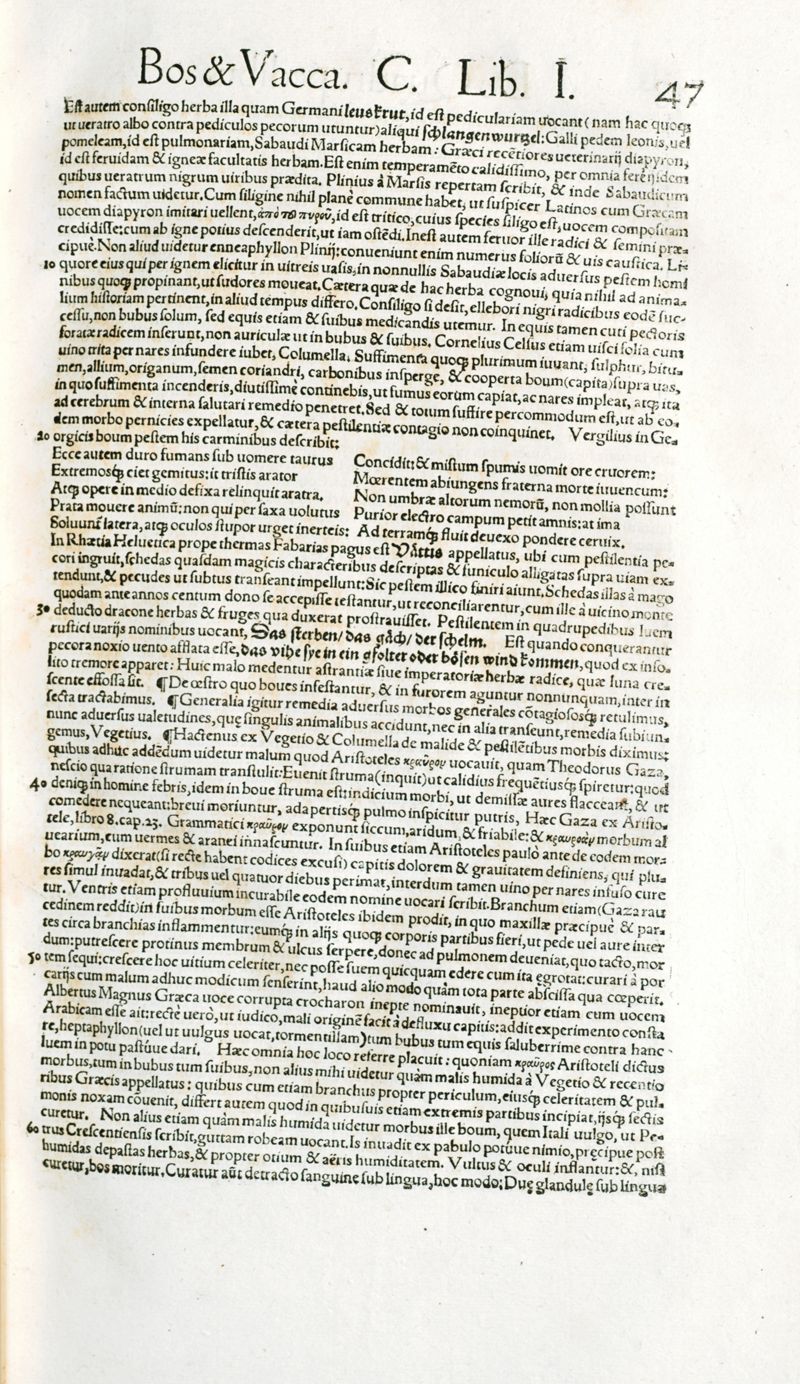 Bos & Vacca. C. Lib. I. 47
Est autem consiligo herba illa quam Germani leuskrut, id est pediculariam uocant (nam hac quoq;
ut ueratro albo contra pediculos pecorum utuntur) aliqui schlangenwurtzel: Galli pedem leonis, uel
pomeleam, id est pulmonariam, Sabaudi Marsicam herbam: Græci recẽtiores ueterinarij diapyron,
id est feruidam & igneæ facultatis herbam. Est enim temperamẽto calidissimo, per omnia ferè ijsdem
quibus ueratrum nigrum uiribus prædita. Plinius à Marsis repertam scribit, & inde Sabaudicum
nomen factum uidetur. Cum siligine nihil planè commune habet, ut suspicer Latinos cum Græcam
uocem diapyron imitari uellent, ἀπὸ τοῦ πυροῦ, id est tritico, cuius species siligo est, uocem compositam
credidisse: cum ab igne potius descenderit, ut iam ostẽdi. Inest autem feruor ille radici & semini præ-
cipuè. Non aliud uidetur enneaphyllon Plinij: conueniunt enim numerus foliorũ & uis caustica. Li-
10 quore eius qui per ignem elicitur in uitreis uasis, in nonnullis Sabaudiæ locis aduersus pestem homi
nibus quoq; propinant, ut sudores moueat. Cætera quæ de hac herba cognoui, quia nihil ad anima-
lium historiam pertinent, in aliud tempus differo. Consiligo si desit, ellebori nigri radicibus eodẽ suc-
cessu, non bubus solum, sed equis etiam & suibus medicandis utemur. In equis tamen cuti pectoris
foratæ radicem inserunt, non auriculæ ut in bubus & suibus. Cornelius Celsus etiam uisci folia cum
uino trita per nares infundere iubet, Columella. Suffimenta quoq; plurimum iuuant, sulphur, bitu-
men, allium, origanum, semen coriandri, carbonibus insperge, & cooperta boum (capita) supra uas,
in quo suffimenta incenderis, diutissimè continebis, ut fumus eorum capiat, ac nares impleat, atq; ita
ad cerebrum & interna salutari remedio penetret. Sed & totum suffire percommodum est, ut ab eo-
dem morbo pernicies expellatur, & cætera pestilentiæ contagio non coinquinet. Vergilius in Ge-
20 orgicis boum pestem his carminibus describit:
Ecce autem duro fumans sub uomere taurus
Extremosq; ciet gemitus: it tristis arator
Atq; opere in medio defixa relinquit aratra.
Prata mouere animũ: non qui per saxa uolutus
Soluunt latera, atq; oculos stupor urget inerteis:
Concidit: & mistum spumis uomit ore cruorem:
Mœrentem abiungens fraterna morte iuuencum:
Non umbræ altorum nemorũ, non mollia possunt
Purior electro campum petit amnis: at ima
Ad terramq; fluit deuexo pondere ceruix.
In Rhætia Heluetica prope thermas Fabarias pagus est Vättis appellatus, ubi cum pestilentia pe-
cori ingruit, schedas quasdam magicis characteribus descriptas & funiculo alligatas supra uiam ex-
tendunt, & pecudes ut subtus transeant impellunt: Sic pestem illico finiri aiunt. Schedas illas à mago
quodam ante annos centum dono se accepisse testantur, ut reconciliarentur, cum ille à uicino monte
30 deducto dracone herbas & fruges qua duxerat prostrauisset. Pestilentem in quadrupedibus luem
rustici uarijs nominibus uocant, Das sterben/ das gäch/ der schelm. Est quando conquerantur
pecora noxio uento afflata esse, das vihe sye in ein gfolter oder bösen wind kommen, quod ex inso-
lito tremore apparet: Huic malo medentur astrantiæ siue imperatoriæ herbæ radice, quæ luna cre-
scente effossa sit. ¶ De œstro quo boues infestantur, & in furorem aguntur nonnunquam, inter in
secta tractabimus. ¶ Generalia igitur remedia aduersus morbos generales cõtagiososq; retulimus,
nunc aduersus ualetudines, quę singulis animalibus accidunt, nec in alia transeunt, remedia subiun-
gemus, Vegetius. ¶ Hactenus ex Vegetio & Columella de malide & pestilẽtibus morbis diximus:
quibus adhuc addẽdum uidetur malum quod Aristoteles κραῦρον uocauit, quam Theodorus Gaza,
nescio qua ratione strumam transtulit: Euenit struma (inquit) ut calidius frequẽtiusq; spiretur: quod
40 deniq; in homine febris, idem in boue struma est: indicium morbi, ut demissæ aures flacceant, & ut
comedere nequeant: breui moriuntur, adapertisq; pulmo inspicitur putris, Hæc Gaza ex Aristo-
tele, libro 8. cap. 23. Grammatici κραῦρον exponunt siccum, aridum, & friabile: & κραυρᾶν morbum al
uearium, cum uermes & aranei innascuntur. In suibus etiam Aristoteles paulò ante de eodem mor-
bo κραυγᾶν dixerat (si recte habent codices excusi) capitis dolorem & grauitatem definiens, qui plu-
res simul inuadat, & tribus uel quatuor diebus perimat, interdum tamen uino per nares infuso cure
tur. Ventris etiam profluuium incurabile eodem nomine uocari scribit. Branchum etiam (Gaza rau
cedinem reddit) in suibus morbum esse Aristoteles ibidem prodit, in quo maxillæ præcipuè & par-
tes circa branchias inflammentur: eumq; in alijs quoq; corporis partibus fieri, ut pede uel aure inter
dum: putrescere protinus membrum & ulcus serpere, donec ad pulmonem deueniat, quo tacto, mor
50 tem sequi: crescere hoc uitium celeriter, nec posse suem quicquam edere cum ita egrotat: curari à por
carijs cum malum adhuc modicum senserint, haud alio modo quàm tota parte abscissa qua cœperit.
Albertus Magnus Græca uoce corrupta crocharon inepte nominauit, ineptior etiam cum uocem
Arabicam esse ait: rectè uerò, ut iudico, mali originẽ facit à defluxu capitis: addit experimento consta
re, heptaphyllon (uel ut uulgus uocat, tormentillam) tum bubus tum equis saluberrime contra hanc
luem in potu pastúue dari. Hæc omnia hoc loco referre placuit: quoniam κραῦρος Aristoteli dictus
morbus, tum in bubus tum suibus, non alius mihi uidetur quàm malis humida à Vegetio & recentio
ribus Græcis appellatus: quibus cum etiam branchus propter periculum, eiusq; celeritatem & pul-
monis noxam cõuenit, differt autem quod in quibusuis etiam extremis partibus incipiat, ijsq; sectis
curetur. Non alius etiam quàm malis humida uidetur morbus ille boum, quem Itali uulgo, ut Pe-
60 trus Crescentiensis scribit, guttam robeam uocant. Is inuadit ex pabulo potúue nimio, præcipue post
humidas depastas herbas, & propter otium & aëris humiditatem. Vultus & oculi inflantur: &, nisi
curetur, bos moritur. Curatur aũt detracto sanguine sub lingua, hoc modo: Duę glandulę sub lingua